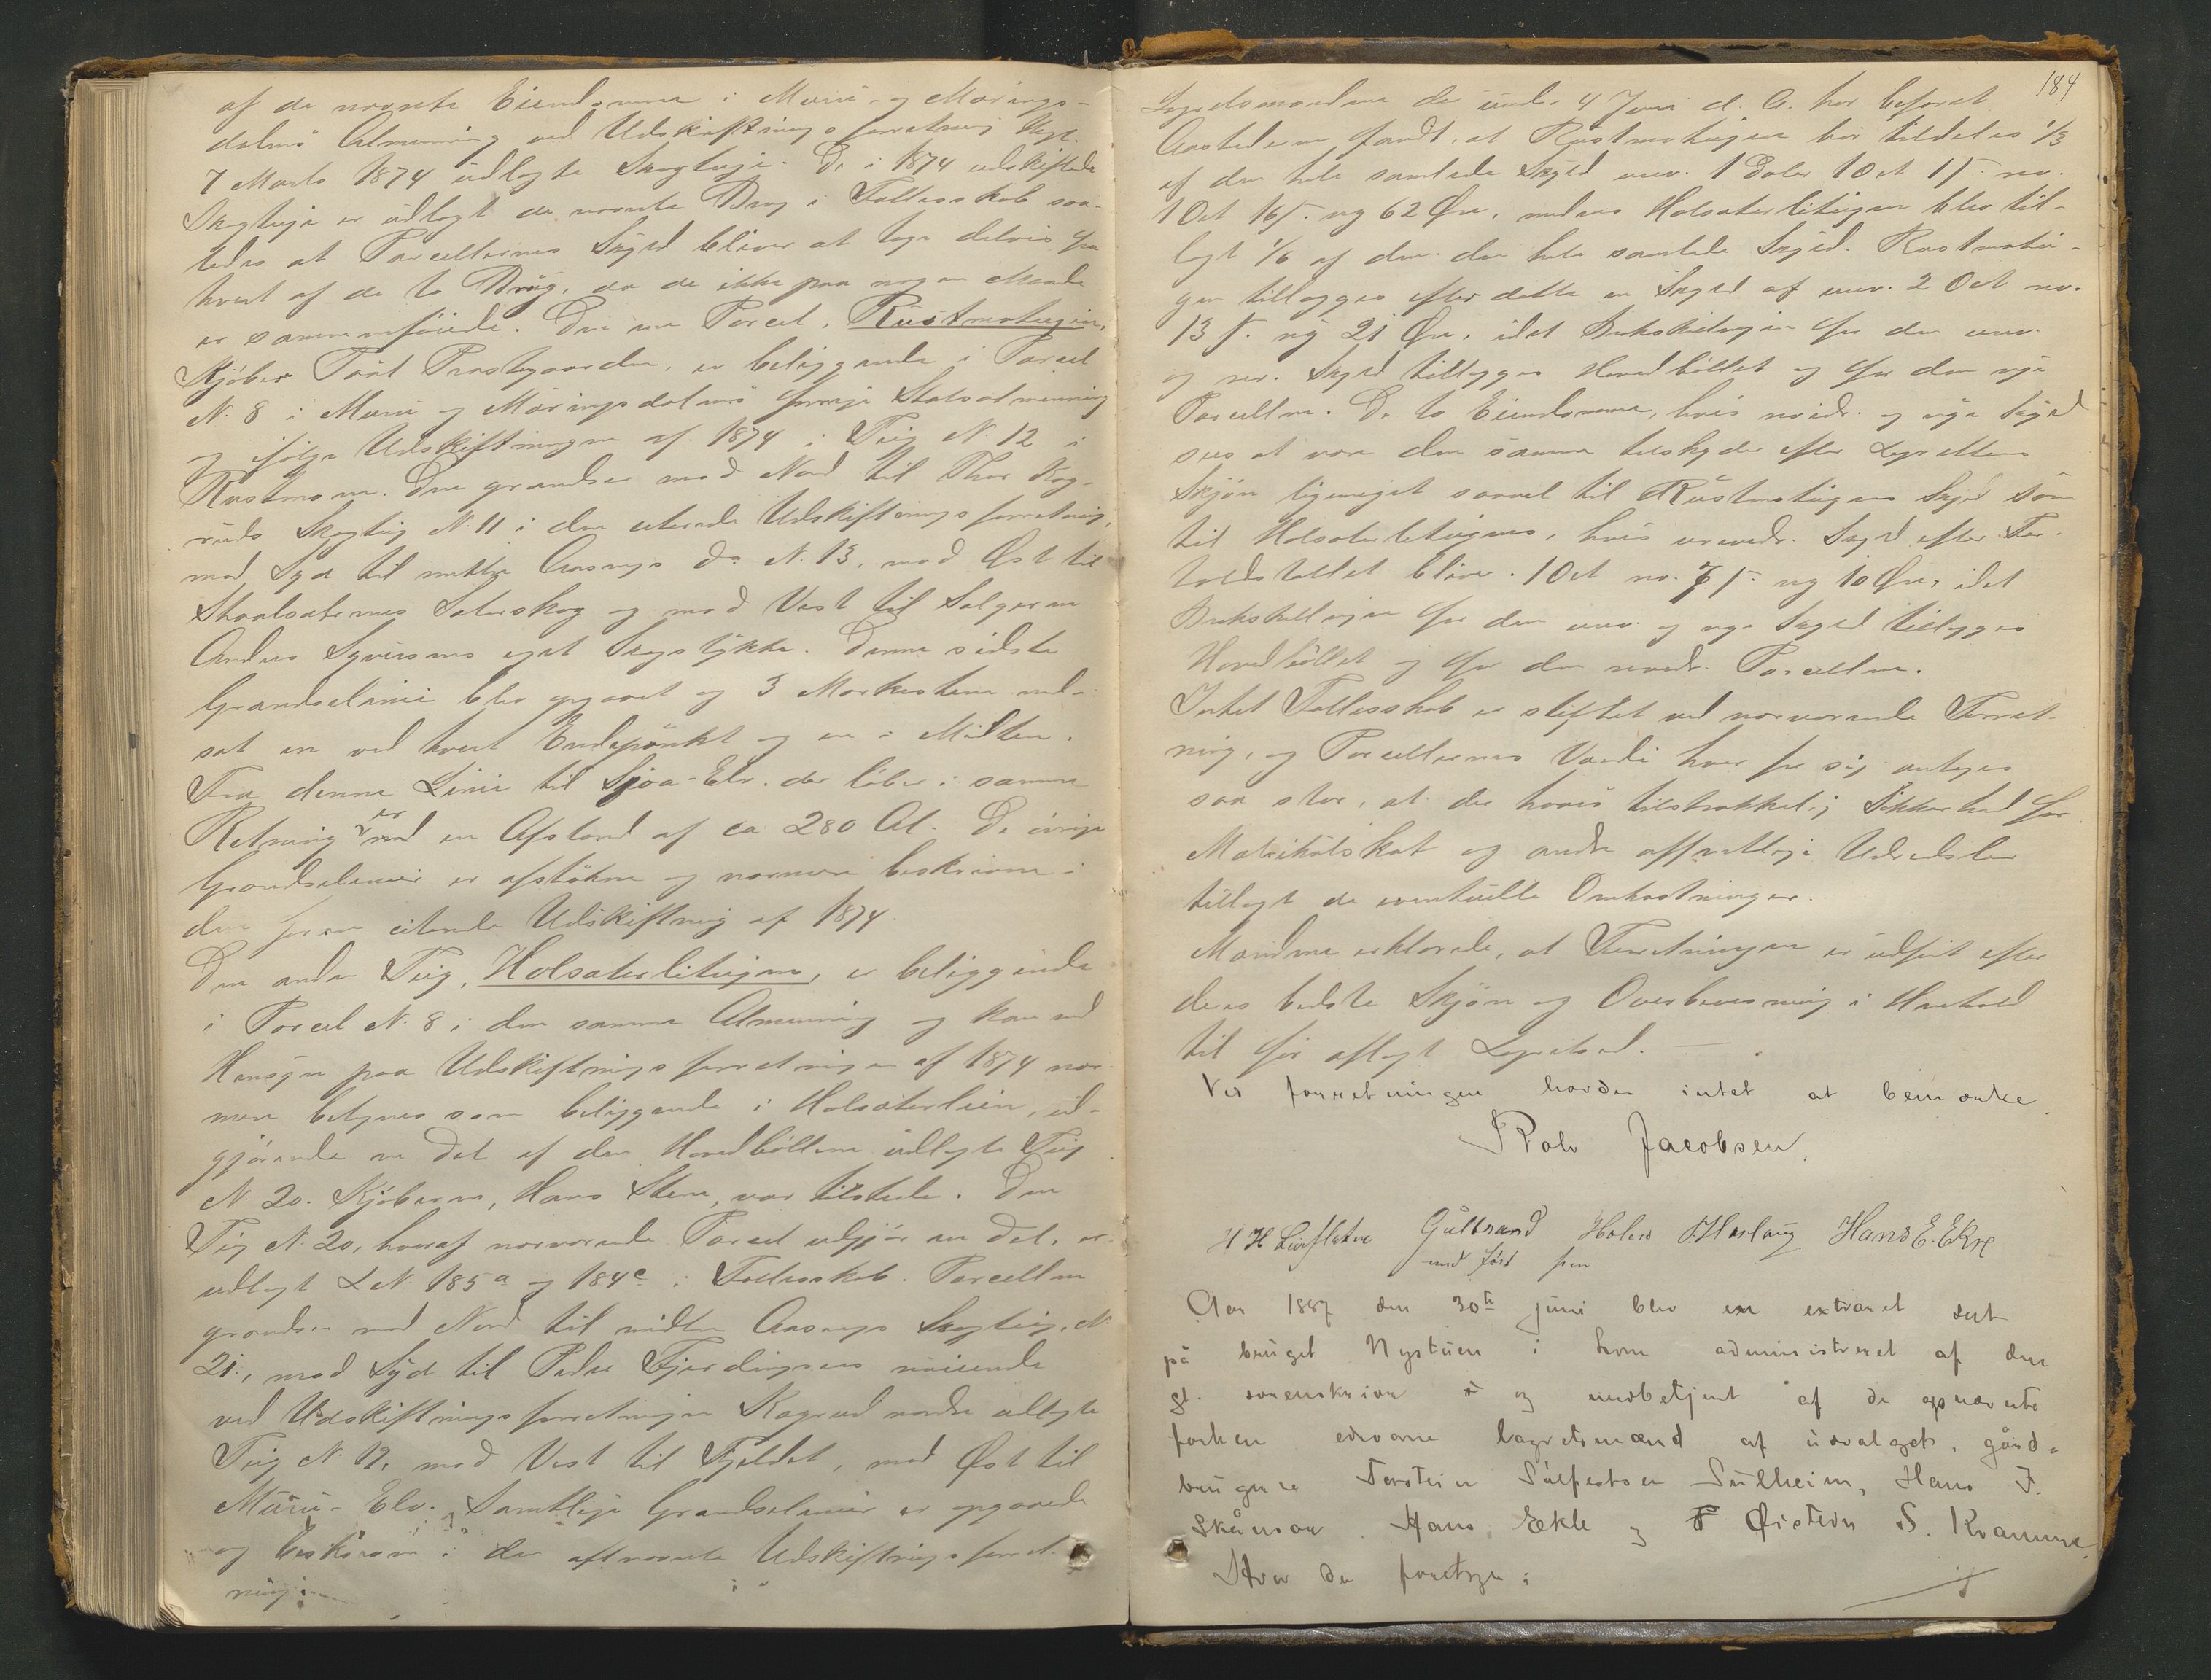 af de nævnte Eiendomme i Murú- og Mærings-
dalens Almenning ved Udskiftningsforretning
7 Marts 1874 udlagte Skogteige. De i 1874 udskiftede
Skogteige er udlagt de nævnte Brug i Fællesskab saa-
ledes at Parcellernes Skyld bliver at tage delvis fra
hvert af de to Brug, da de ikke paa nogen Maade
er sammenføiede. Den ene Parcel, Rústmoteigen,
Kjøber Paal Prestegaarden, er beliggende i Parcel
N. 8 i Murú og Mæringsdalens forrige Statsalmenning
og ifølge Udskiftningen af 1874 i Teig N. 12 i
Rústmoen. Den grændser mod Nord til Thor Kog-
ruds Skogteig N. 11 i den citerede Udskiftningsforretning,
mod Syd til midtre Aasangs do N. 13, mod Øst til
Skaalsæternes Sæterskog og mod Vest til Sælgeren
Anders Syversens eget Skogstykke. Denne sidste
Grændselinie blev opgaaet og 3 Markestene ned-
sat en ved hvert Endepúnkt og en i Midten.
Fra denne Linie til Sjoa-Elv. der løber i samme
Retning er en Afstand af ca 280 Al. De øvrige
Grændselinier er afstukne og nærmere beskrevne i
den foran citerede Udskiftning af 1874.
Den anden Teig, Holsæterliteigen, er beliggende
i Parcel N. 8 i den samme Almenning og kan med
Hensyn paa Udskiftningsforretningen af 1874 nær-
mere betegnes som beliggende i Holsæterlien, úd-
gjørende en Del af den Hovedbøllerne údlagte Teig
N. 20. Kjøberen, Hans Stene, var tilstede. Den
Teig N. 20, hvoraf nærværende Parcel udgjør en Del, er
udlagt L N. 185a og 184c i Fællesskab. Parcellen
grændser mod Nord til midtre Aasangs Skogteig, N.
21, mod Syd til Peder Fjerdingsens
ved Udskiftningsforretningen Kogrud nordre udlagte
Teig N. 19, mod Vest til Fjeldet, mod Øst til
Múrú-Elv. Samtlige Grændselinier er opgaaede
og beskrevne i den oftnævnte Udskiftningsforret-
ning.
184
Lagretsmændene der únder 4 Juni d. A. har befaret
Aastederne fandt, at Rústmoteigen bør tildeles 1/3
af den hele samlede Skyld urev. 1 Daler 1 Ort 1 s. rev.
1 Ort 16 s. og 62 Øre, medens Holsæterliteigen blev til-
lagt 1/6 af den hele samlede Skyld. Rústmotei-
gen tillægges efter dette en Skyld af urev. 2 Ort rev.
13 s. og 21 Øre, idet Brøkskillingen for den urev.
og rev. Skyld tillægges Hovedbøllet og for den nye
Parcellen. De to Eiendomme, hvis revidr. og nye Skyld
sees at være den samme tilskyder efter Lagrettens
Skjøn ligemeget saavel til Rústmoteigens Skyld som
til Holsæterliteigens, hvis urevidr. Skyld efter For-
holdstallet bliver 1 Ort rev. 7 s. og 10 Øre, idet
Brøkskillingen for den urev. og nye Skyld tillægges
Hovedbøllet og for den revidr. Parcellen.
Intet Fællesskab er stiftet ved nærværende Forret-
ning, og Parcellernes Værdi hver for sig antages
saa stor, at der haves tilstrækkelig Sikkerhed for
Matrikúlskat og andre offentlige Udredsler
tillagt de eventuelle Omkostninger.
Mændene erklærede, at Forretningen er udført efter
deres bedste Skjøn og Overbevisning i Henhold
til før aflagt Lagretsed.
Ved forretningen havdes intet at bemærke.
Rolv Jacobsen.
Gúlbrand Holen Hans E. Ekre
med ført pen
Aar 1887 den 30te júni blev en extraret sat
på brúget Nystúen i administreret af den
sorenskriver og medbetjent af de opnævnte
forhen edsvorne lagretsmænd af údvalget, gård-
brúgere Torstein Súlheim, Hans J.
Skåmsar. Hans Ekle og Øistein S. Kvamme.
Hvor da foretoges: